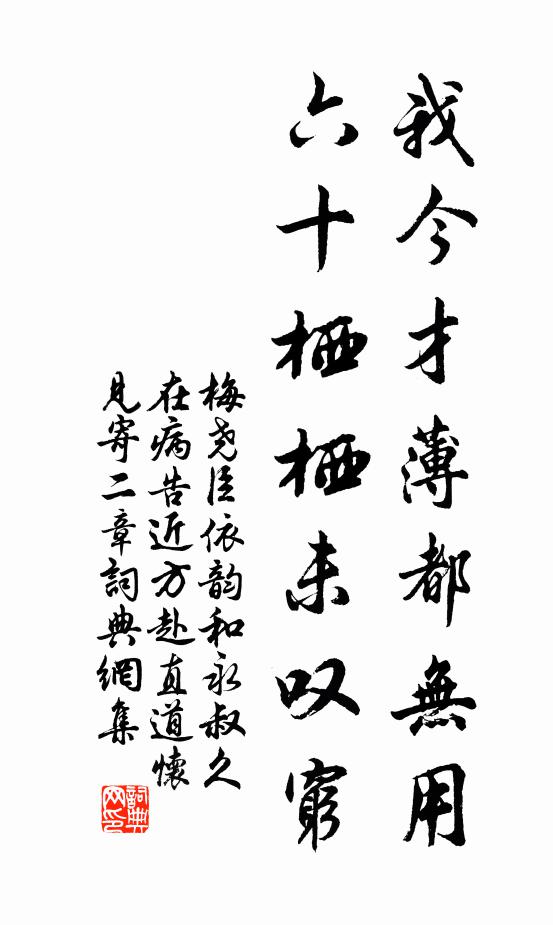 我今才薄都無用
六十栖栖未叹窮
梅尧臣依韵和永叔久
在病告近方赴直道懷
見寄二章詞典網集
詞典
网印